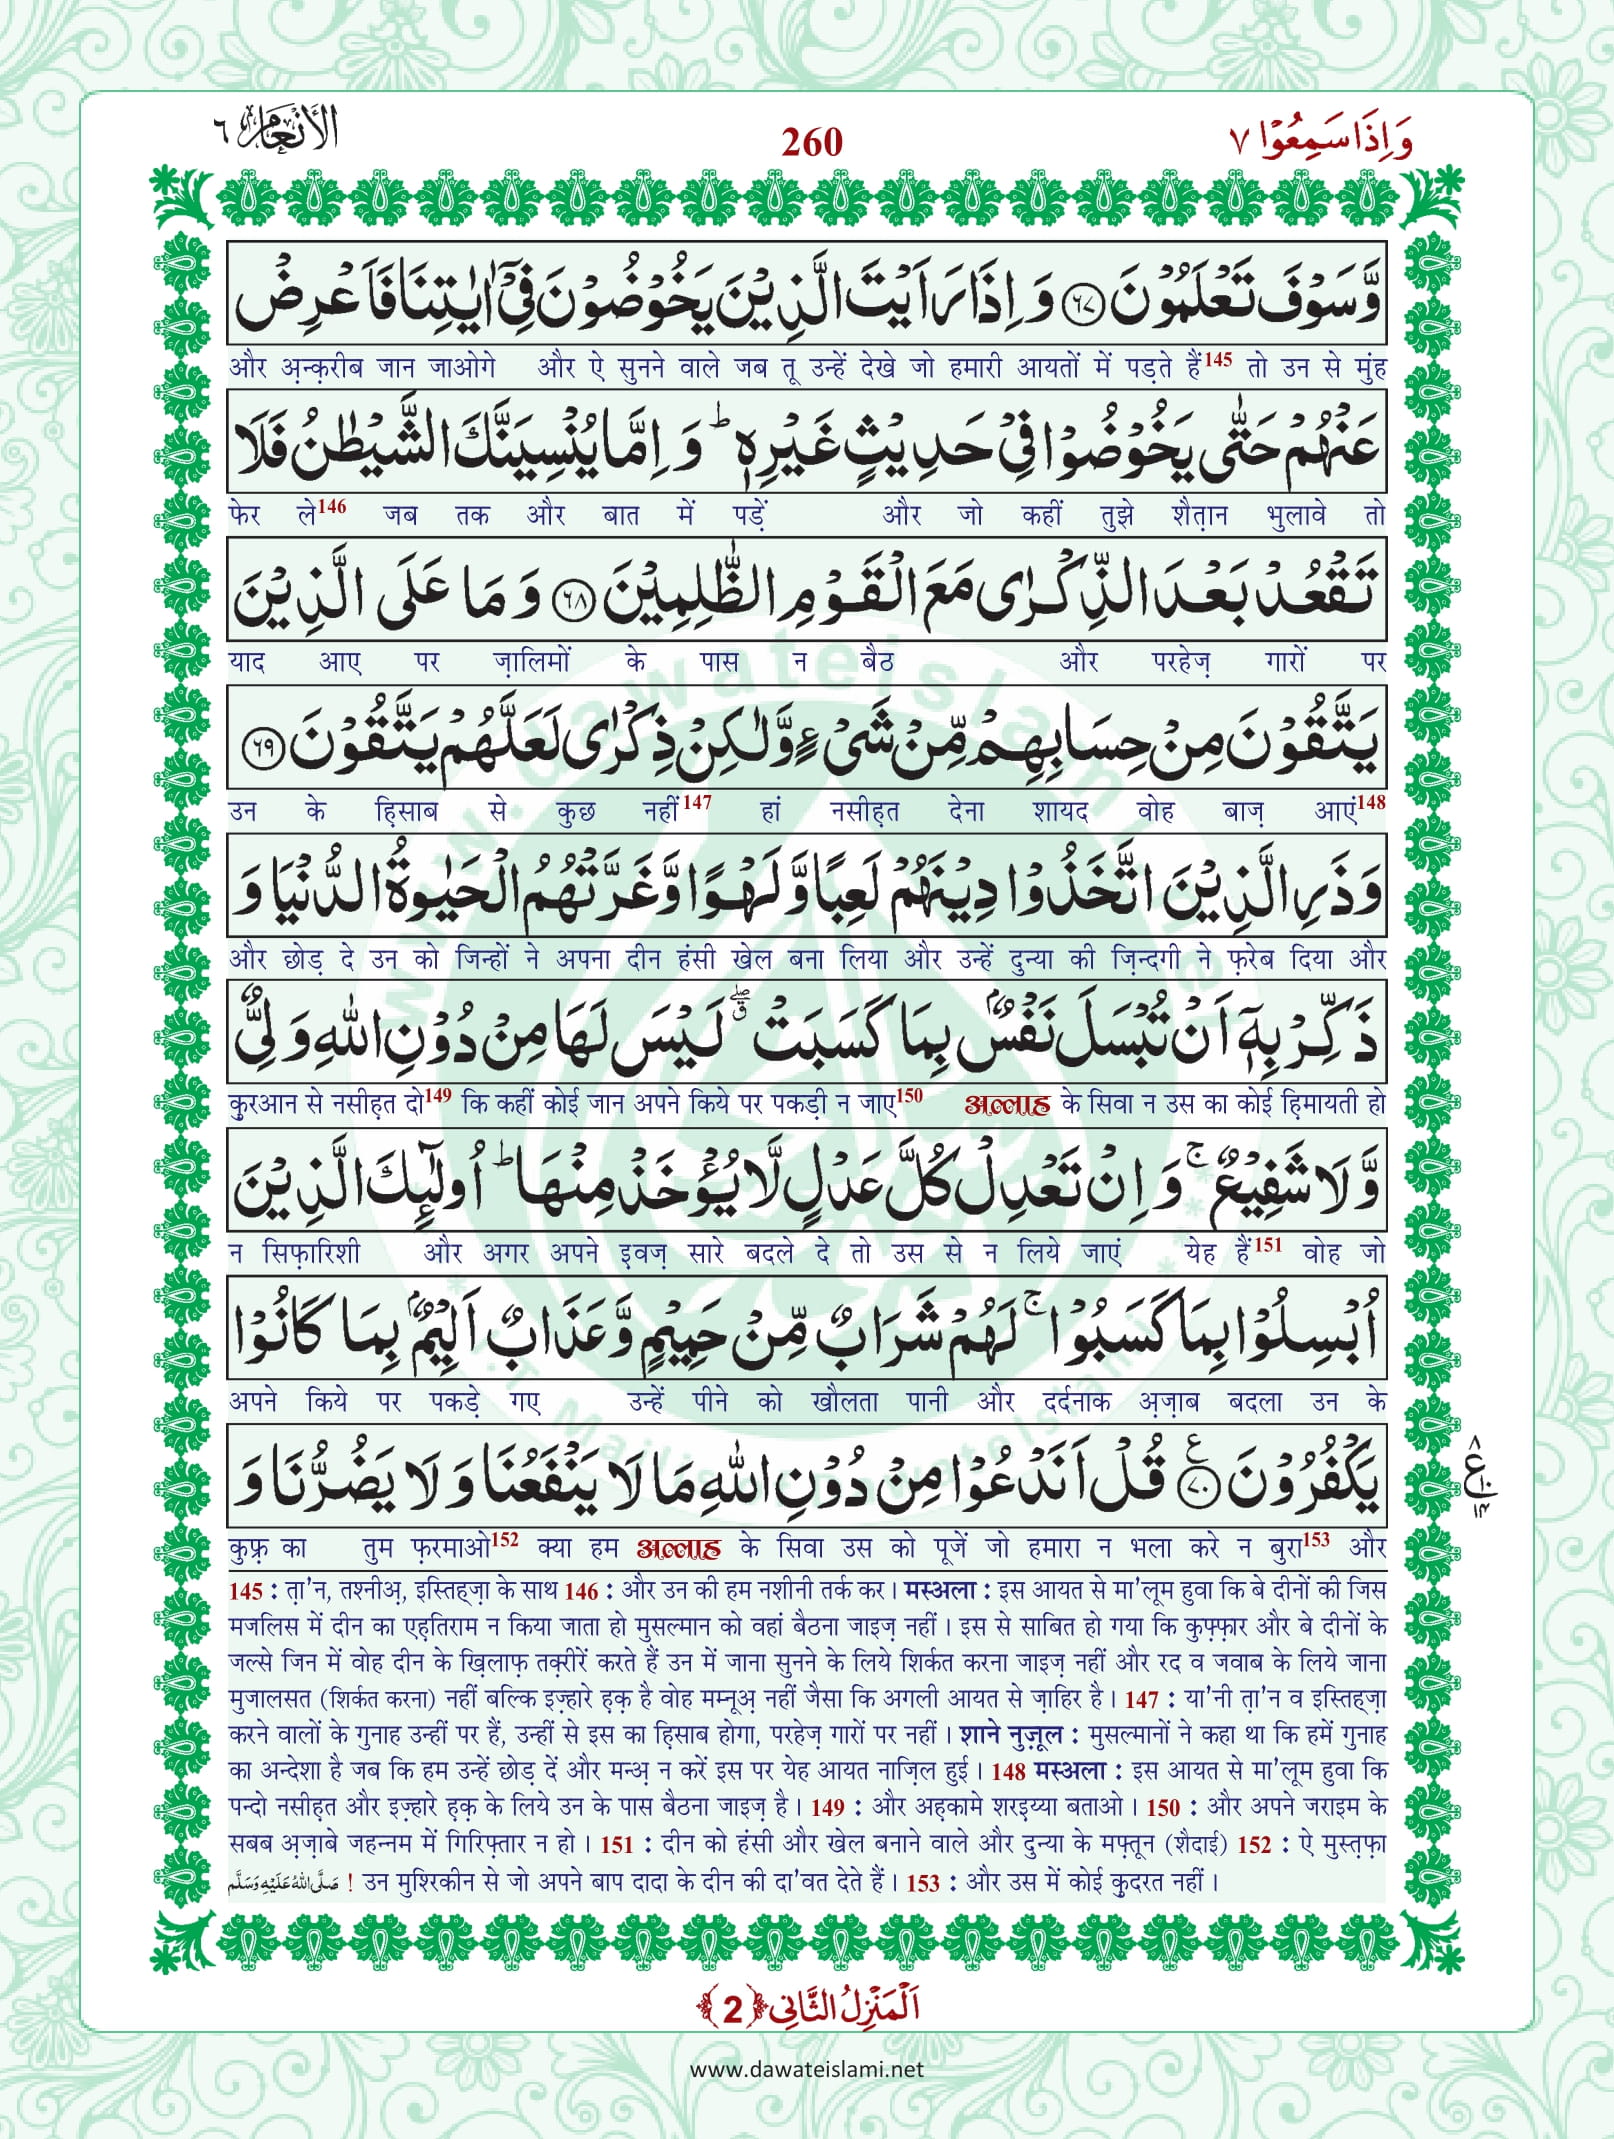 وَاِذَا سَمِعُوْا ٧
260
الْاَنْعَام ٦
وَّسَوْفَ تَعْلَمُوْنَ ﴿٦٧﴾ وَ اِذَا رَاَیْتَ الَّذِیْنَ یَخُوْضُوْنَ فِیْۤ اٰیٰتِنَا فَاَعْرِضْ
और अ़न्क़रीब जान जाओगे और ऐ सुनने वाले जब तू उन्हें देखे जो हमारी आयतों में पड़ते हैं145 तो उन से मुंह
عَنْهُمْ حَتّٰى یَخُوْضُوْا فِیْ حَدِیْثٍ غَیْرِهٖؕ وَ اِمَّا یُنْسِیَنَّكَ الشَّیْطٰنُ فَلَا
फेर ले146 जब तक और बात में पड़ें और जो कहीं तुझे शैत़ान भुलावे तो
تَقْعُدْ بَعْدَ الذِّكْرٰى مَعَ الْقَوْمِ الظّٰلِمِیْنَ ﴿٦٨﴾ وَ مَا عَلَى الَّذِیْنَ
याद आए पर ज़ालिमों के पास न बैठ और परहेज़ गारों पर
یَتَّقُوْنَ مِنْ حِسَابِهِمْ مِّنْ شَیْءٍ وَّلٰكِنْ ذِكْرٰى لَعَلَّهُمْ یَتَّقُوْنَ ﴿٦٩﴾
उन के ह़िसाब से कुछ नहीं147 हां नसीह़त देना शायद वोह बाज़ आएं148
وَذَرِ الَّذِیْنَ اتَّخَذُوْا دِیْنَهُمْ لَعِبًا وَّ لَهْوًا وَّ غَرَّتْهُمُ الْحَیٰوةُ الدُّنْیَا وَ
और छोड़ दे उन को जिन्हों ने अपना दीन हंसी खेल बना लिया और उन्हें दुन्या की ज़िन्दगी ने फ़रेब दिया और
ذَكِّرْ بِهٖۤ اَنْ تُبْسَلَ نَفْسٌۢ بِمَا كَسَبَتْ ۖۗ لَیْسَ لَهَا مِنْ دُوْنِ اللّٰهِ وَلِیٌّ
क़ुरआन से नसीह़त दो149 कि कहीं कोई जान अपने किये पर पकड़ी न जाए150 अल्लाह के सिवा न उस का कोई ह़िमायती हो
وَّلَا شَفِیْعٌۚ وَ اِنْ تَعْدِلْ كُلَّ عَدْلٍ لَّا یُؤْخَذْ مِنْهَاؕ اُولٰٓىٕكَ الَّذِیْنَ
न सिफ़ारिशी और अगर अपने इवज़ सारे बदले दे तो उस से न लिये जाएं येह हैं151 वोह जो
اُبْسِلُوْا بِمَا كَسَبُوْاۚ لَهُمْ شَرَابٌ مِّنْ حَمِیْمٍ وَّ عَذَابٌ اَلِیْمٌۢ بِمَا كَانُوْا
अपने किये पर पकड़े गए उन्हें पीने को खौलता पानी और दर्दनाक अ़ज़ाब बदला उन के
یَكْفُرُوْنَ ﴿٧٠﴾ قُلْ اَنَدْعُوْا مِنْ دُوْنِ اللّٰهِ مَا لَا یَنْفَعُنَا وَ لَا یَضُرُّنَا وَ
٨ ع ١٠ ١٤
कुफ़्र का तुम फ़रमाओ152 क्या हम अल्लाह के सिवा उस को पूजें जो हमारा न भला करे न बुरा153 और
145 : त़ा'न, तश्नीअ़, इस्तिह्ज़ा के साथ 146 : और उन की हम नशीनी तर्क कर। मस्अला : इस आयत से मा'लूम हुवा कि बे दीनों की जिस
मजलिस में दीन का एह़तिराम न किया जाता हो मुसल्मान को वहां बैठना जाइज़ नहीं। इस से साबित हो गया कि कुफ़्फ़ार और बे दीनों के
जल्से जिन में वोह दीन के ख़िलाफ़ तक़्रीरें करते हैं उन में जाना सुनने के लिये शिर्कत करना जाइज़ नहीं और रद व जवाब के लिये जाना
मुजालसत (शिर्कत करना) नहीं बल्कि इज़्हारे ह़क़ है वोह मम्नूअ़ नहीं जैसा कि अगली आयत से ज़ाहिर है। 147 : या'नी त़ा'न व इस्तिह्ज़ा
करने वालों के गुनाह उन्हीं पर हैं, उन्हीं से इस का ह़िसाब होगा, परहेज़ गारों पर नहीं। शाने नुज़ूल : मुसल्मानों ने कहा था कि हमें गुनाह
का अन्देशा है जब कि हम उन्हें छोड़ दें और मन्अ़ न करें इस पर येह आयत नाज़िल हुई। 148 मस्अला : इस आयत से मा'लूम हुवा कि
पन्दो नसीह़त और इज़्हारे ह़क़ के लिये उन के पास बैठना जाइज़ है। 149 : और अह़कामे शरइय्या बताओ। 150 : और अपने जराइम के
सबब अ़ज़ाबे जहन्नम में गिरिफ़्तार न हो। 151 : दीन को हंसी और खेल बनाने वाले और दुन्या के मफ़्तून (शैदाई) 152 : ऐ मुस्त़फ़ा
صَلَّى اللّٰهُ عَلَيْهِ وَسَلَّم ! उन मुश्रिकीन से जो अपने बाप दादा के दीन की दा'वत देते हैं। 153 : और उस में कोई क़ुदरत नहीं।
اَلْمَنْزِلُ الثَّانِی ﴿2﴾
www.dawateislami.net